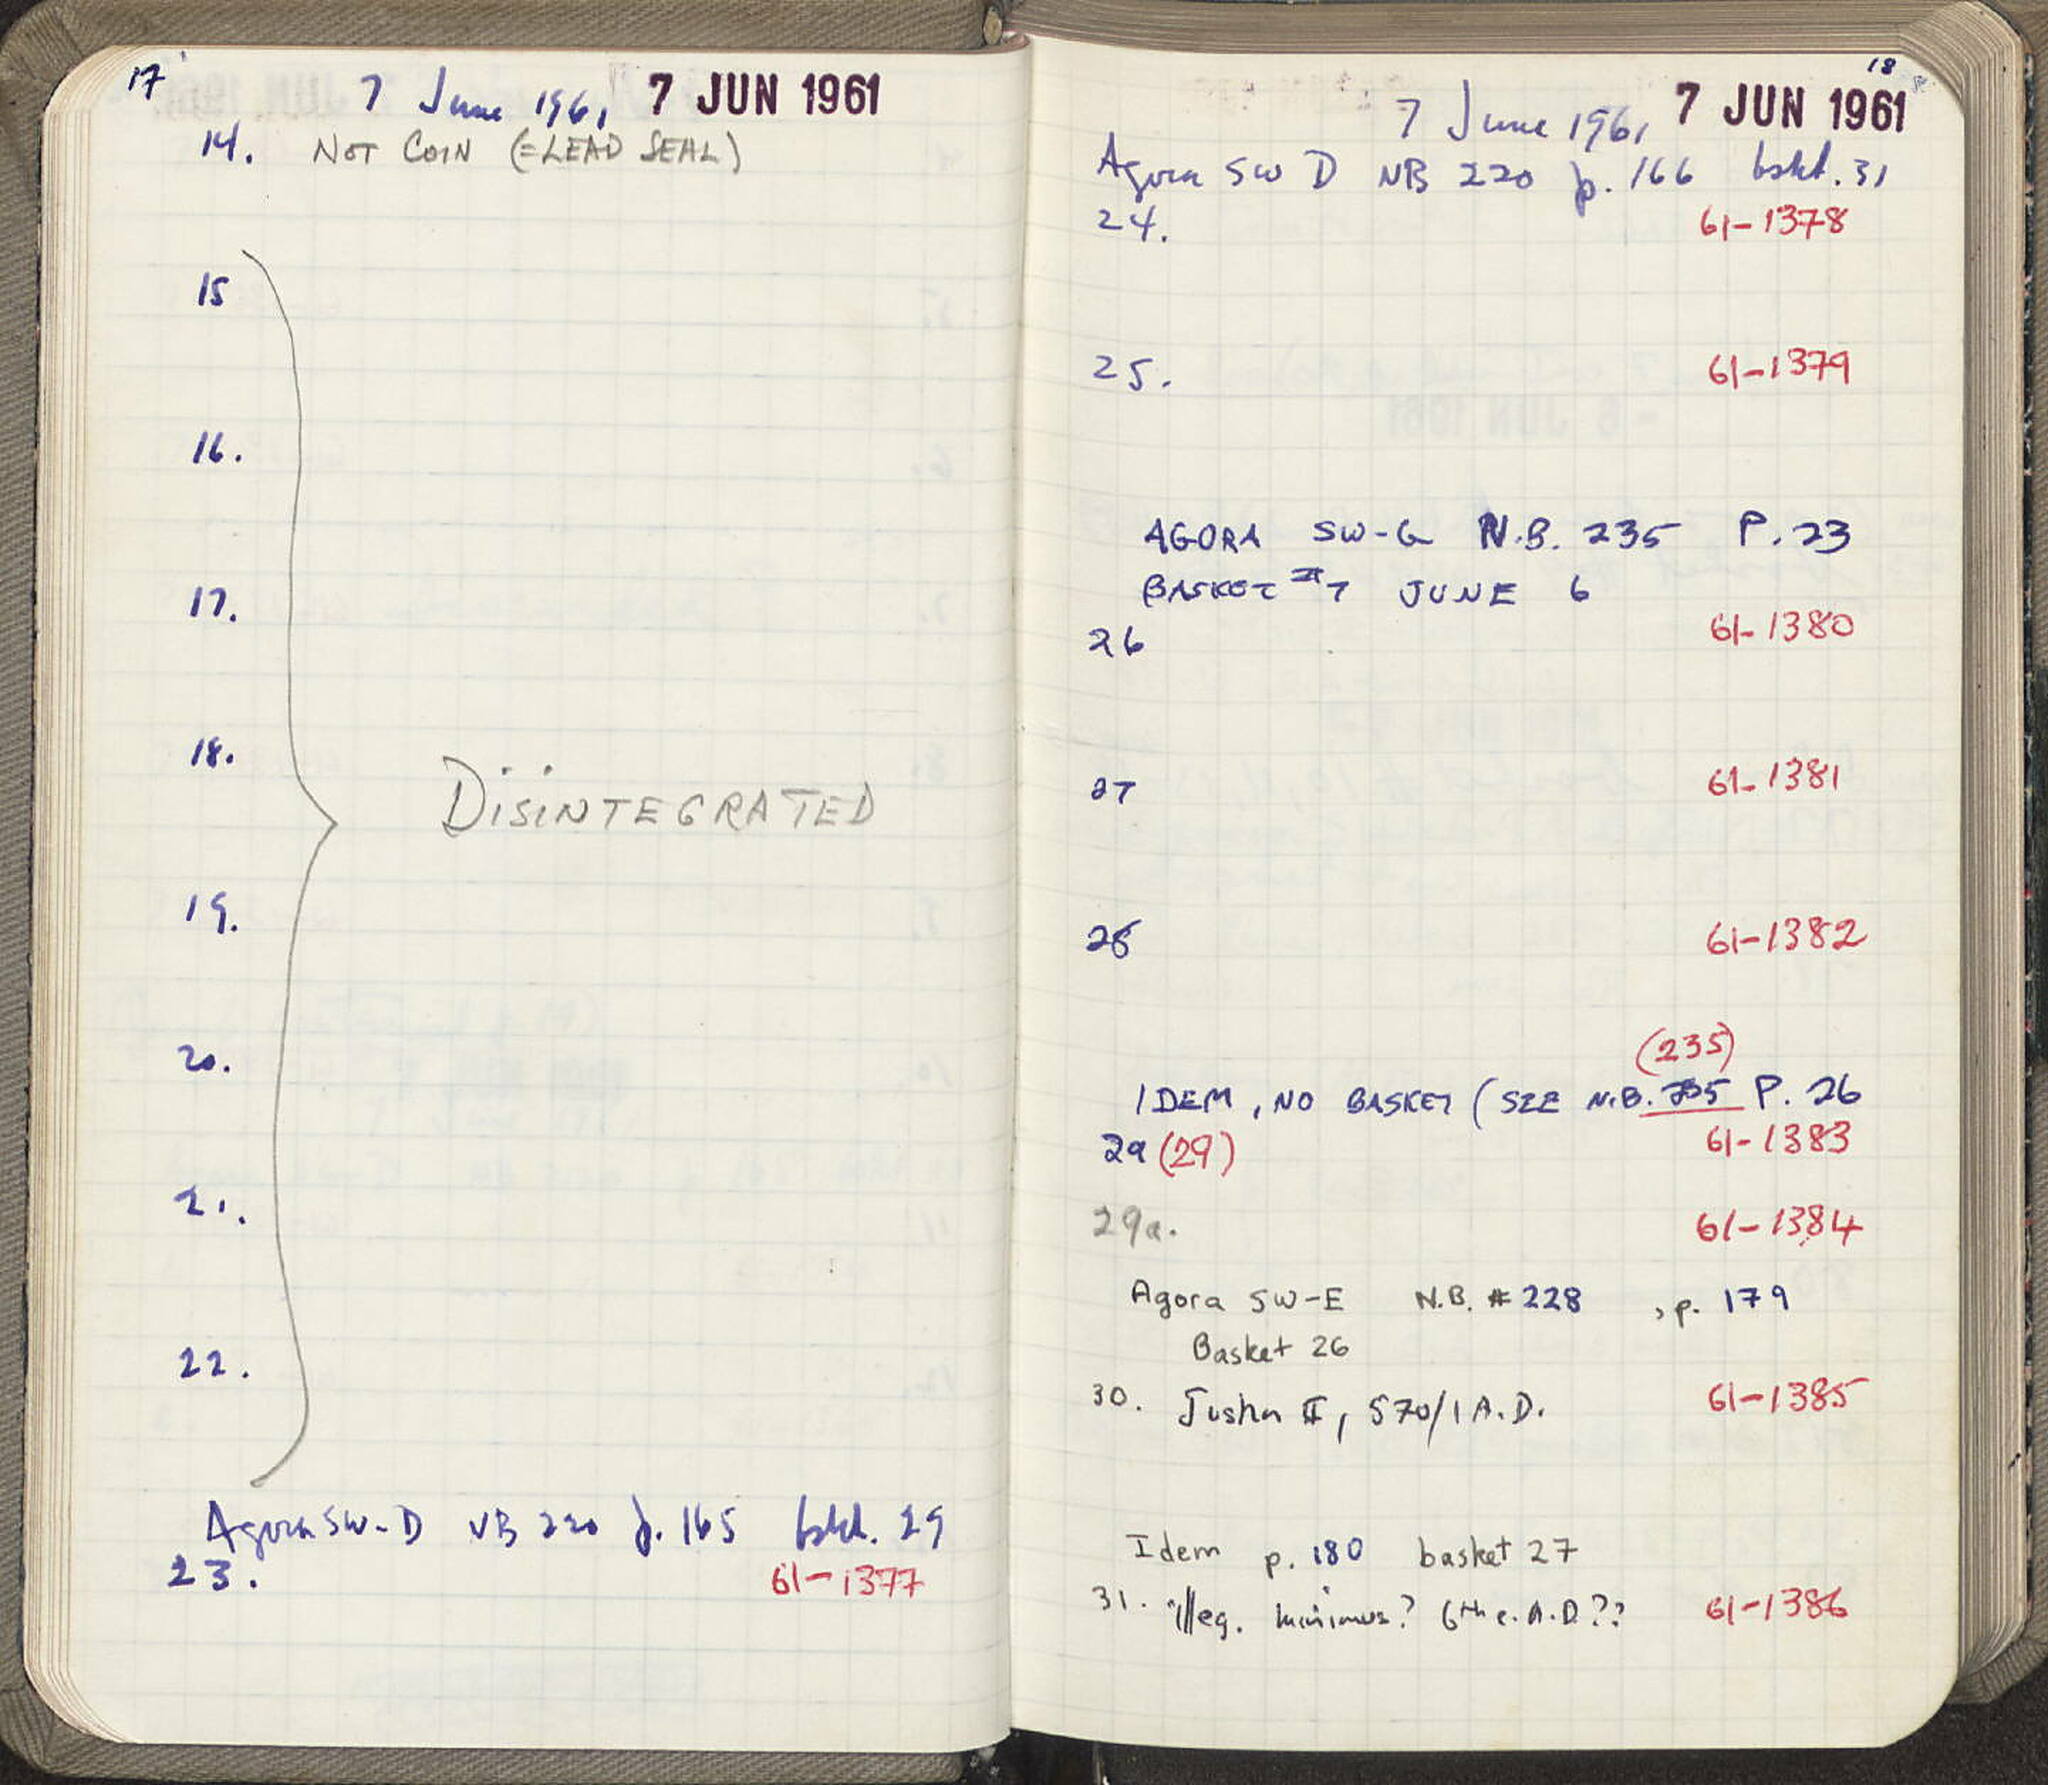 17
7 June 1961 7 JUN 1961
14. NOT COIN (=LEAD SEAL)
15
16.
17.
18.
DISINTEGRATED
19.
20.
21.
22.
Agora SW-D NB 220 p. 165 bskt. 29
23. 61-1377
18
7 June 1961 7 JUN 1961
Agora SW D NB 220 p. 166 bskt. 31
24. 61-1378
25. 61-1379
AGORA SW-G N.B. 235 P. 23
BASKET #7 JUNE 6
26 61-1380
27 61-1381
28 61-1382
(235)
IDEM, NO BASKET (SEE N.B. 235 P. 26
29 (29) 61-1383
29a. 61-1384
Agora SW-E N.B. #228, p. 179
Basket 26
30. Justin II, 570/1 A.D. 61-1385
Idem p. 180 basket 27
31. illeg. minimus? 6th c. A.D.?? 61-1386